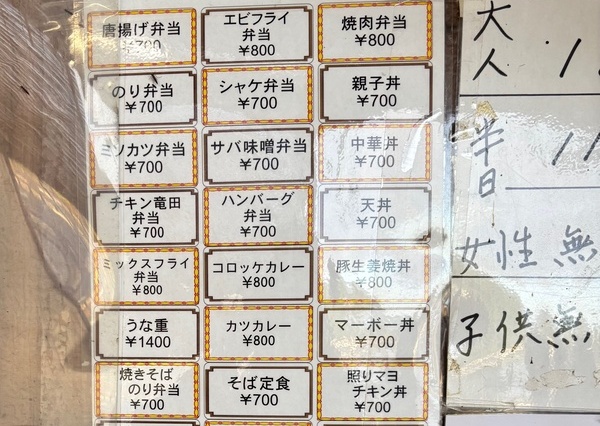 唐揚げ弁当
¥700
エビフライ
弁当
¥800
焼肉弁当
¥800
のり弁当
¥700
シャケ弁当
¥700
親子丼
¥700
ミソカツ弁当
¥700
サバ味噌弁当
¥700
中華丼
¥700
チキン竜田
弁当
¥700
ハンバーグ
弁当
¥700
天丼
¥700
ミックスフライ
弁当
¥800
コロッケカレー
¥800
豚生姜焼丼
¥800
うな重
¥1400
カツカレー
¥800
マーボー丼
¥700
焼きそば
のり弁当
¥700
そば定食
¥700
照りマヨ
チキン丼
¥700
大人
半日
女性 無
子供 無